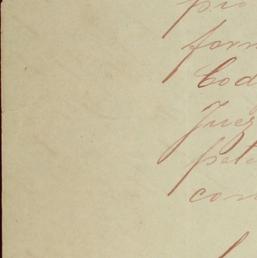 pro
form
Cod
Juez
pete
con